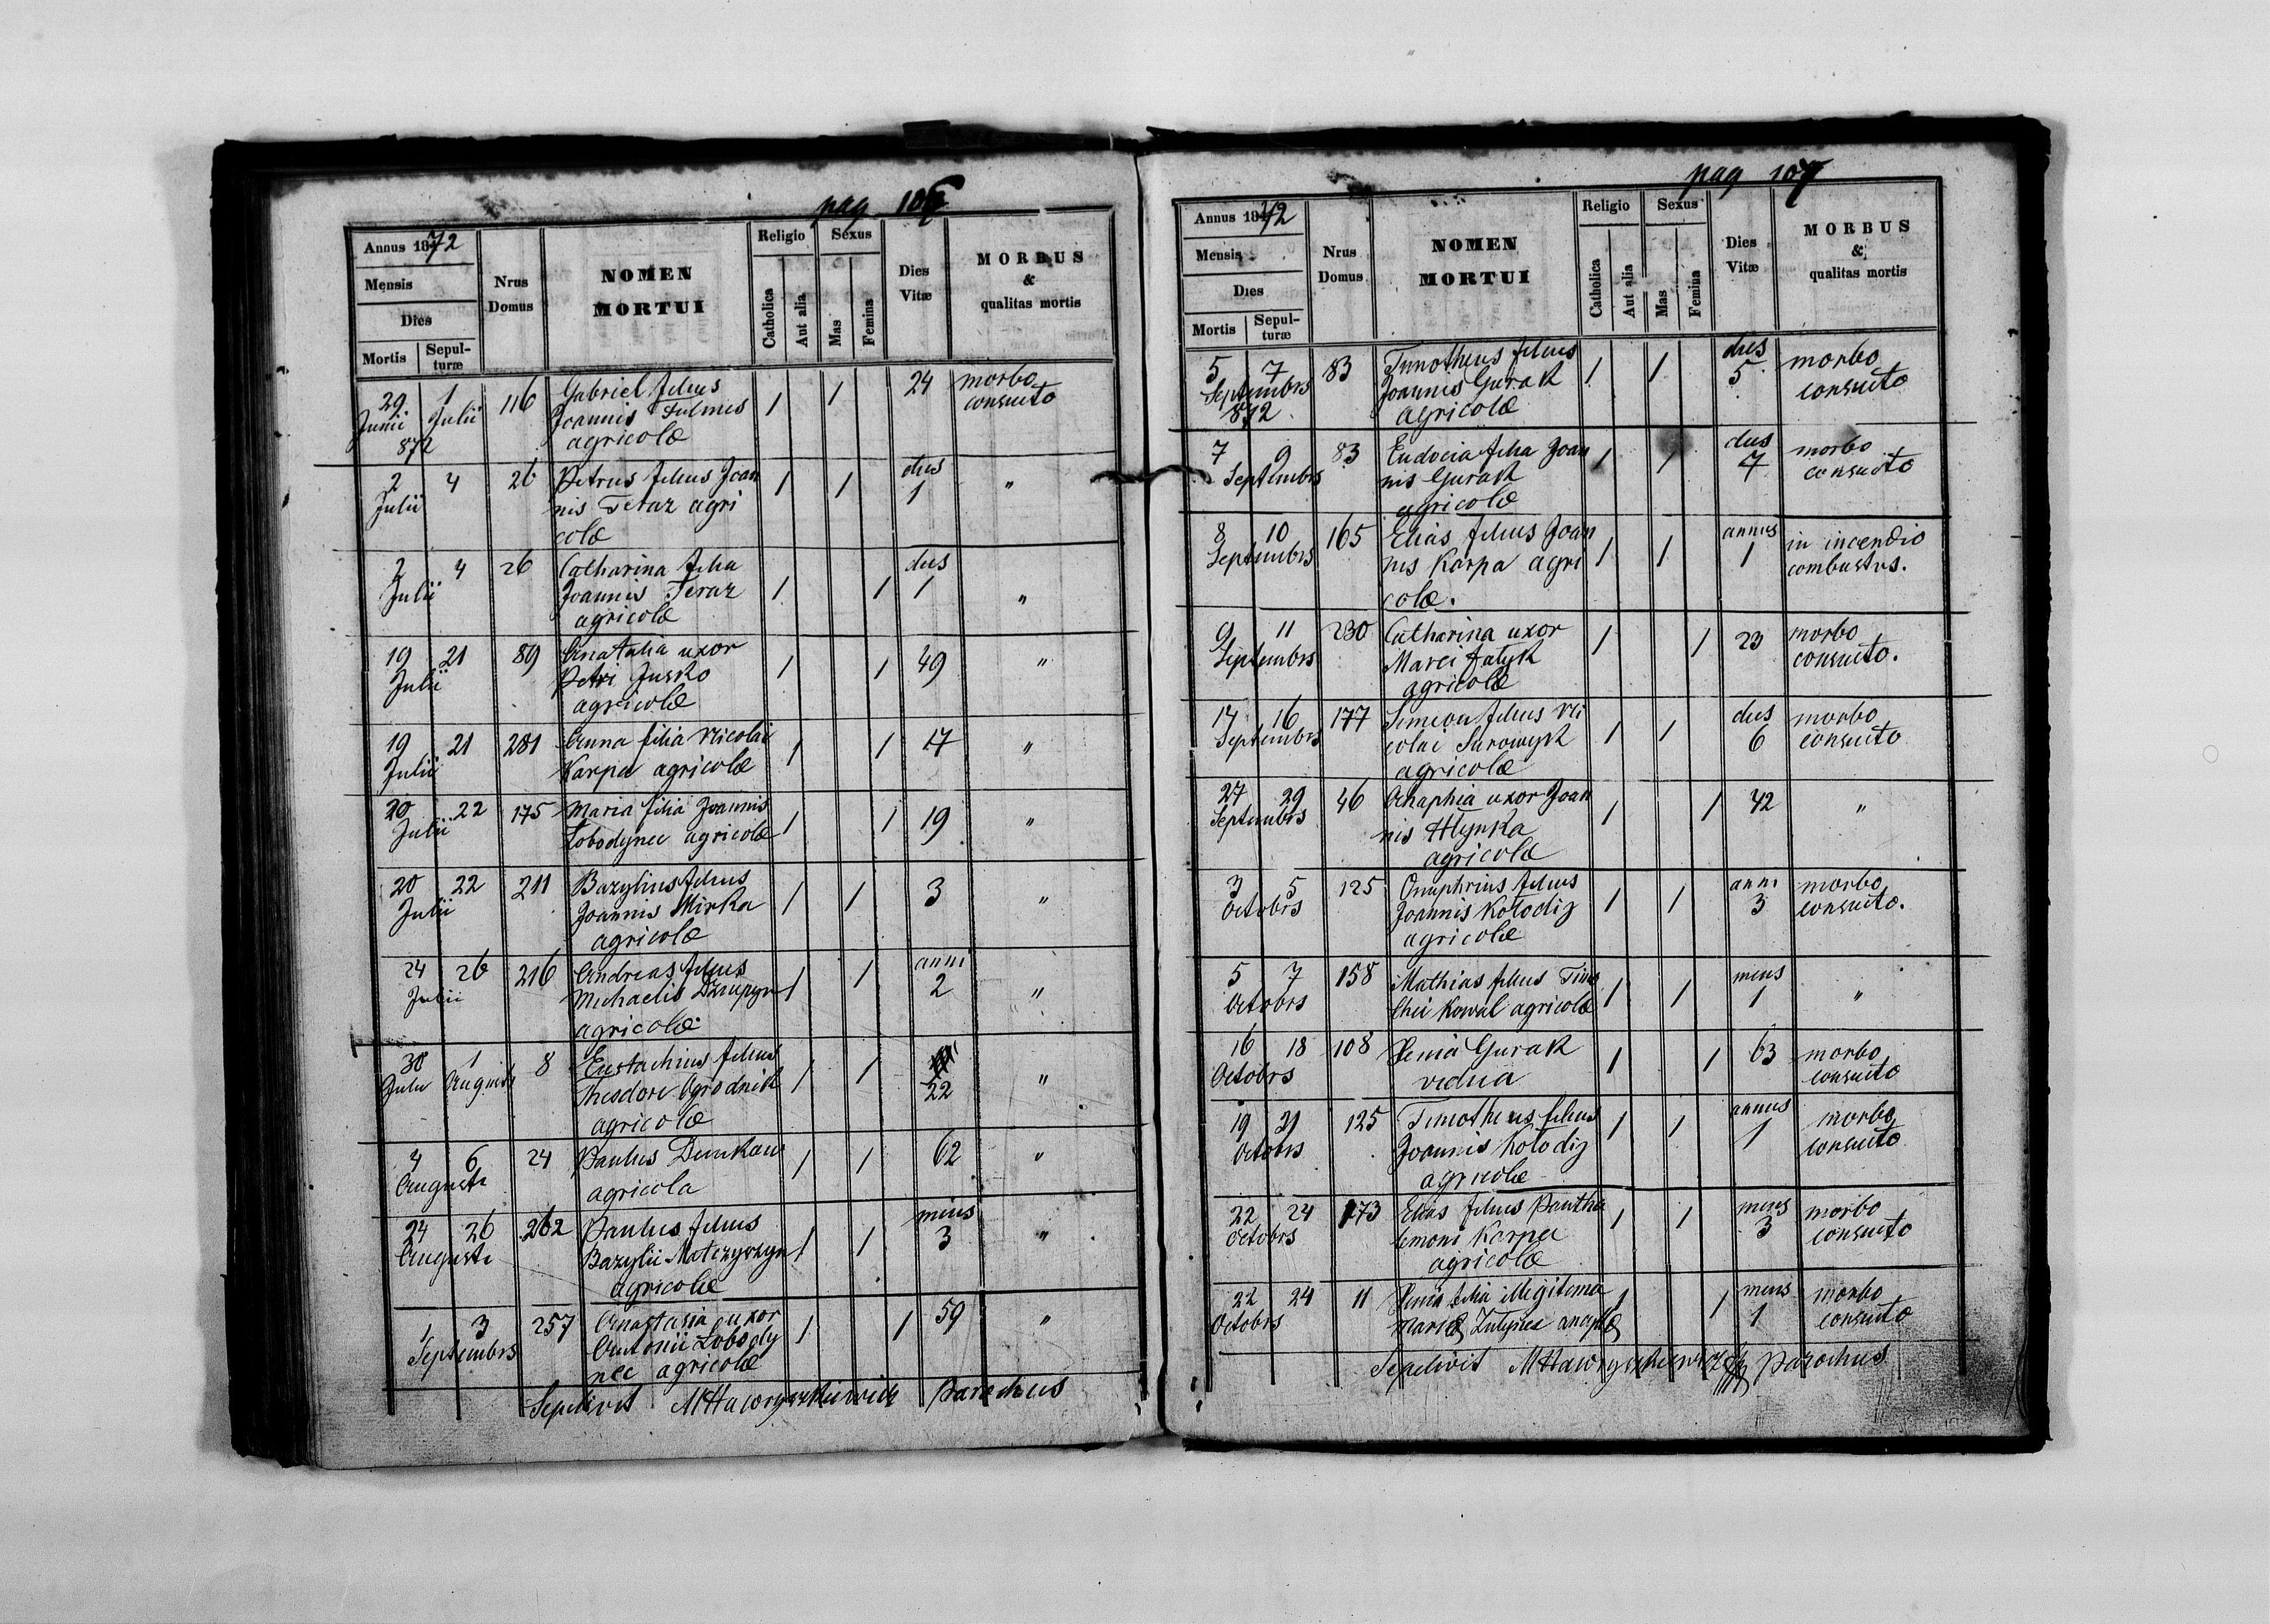 pag 106
Annus 1872
Mensis
Dies
Mortis
Sepul-
turæ
Nrus
Domus
NOMEN
MORTUI
Religio
Catholica
Aut alia
Sexus
Mas
Femina
Dies
Vitæ
MORBUS
&
qualitas mortis
29 1 116 Gabriel filius 1 1 24 morbo
Junii Julii Joannis consueto
872 agricolæ
2 4 26 Petrus filius Joan 1 1 dies
Julii nis Teraz agri 1 "
colæ
2 4 26 Catharina filia dies
Julii Joannis Teraz 1 1 1 "
agricolæ
19 21 89 Anatalia uxor
Julii Petri Jusko 1 1 49 "
agricolæ
19 21 281 Anna filia Nicolai 1 1 17 "
Julii Karpa agricolæ
20 22 175 Maria filia Joannis
Julii Łobodynec agricolæ 1 1 19 "
20 22 211 Bazylius filius
Julii Joannis Mirka 1 1 3 "
agricolæ
24 26 216 Andreas filius 1 anni
Julii Michaelis 1 2 "
agricolæ
30 1 8 Eustachius filius
Julii Augusti Theodori Ogrodnik 1 1 22 "
agricolæ
4 6 24 Paulus 1 1 62 "
Augusti agricola
24 26 262 Paulus filius mens
Augusti Bazylii Matczyszyn 1 1 3 "
agricolæ
1 3 257 Anastasia uxor
Septembrs Antonii Łobody 1 1 59 "
nec agricolæ
Sepelivit MHawryszkiewicz Parochus
pag 107
Annus 1872
Mensis
Dies
Mortis
Sepul-
turæ
Nrus
Domus
NOMEN
MORTUI
Religio
Catholica
Aut alia
Sexus
Mas
Femina
Dies
Vitæ
MORBUS
&
qualitas mortis
5 7 83 Timotheus filius dies morbo
Septembrs Joannis Gurak 1 1 5 consueto
872 agricolæ
7 9 83 Eudocia filia Joan 1 1 dies morbo
Septembrs nis Gurak 7 consueto
agricolæ
8 10 165 Elias filius Joan annus in incendio
Septembrs nis Karpa agri 1 1 1 combustus.
colæ.
9 11 230 Catharina uxor 1 1 23 morbo
Septembrs Marci Fatyk consueto.
agricolæ
14 16 177 Simeon filius Ni dies morbo
Septembrs colai 1 1 6 consueto
agricolæ
27 29 46 Anaphia uxor Joan
Septembrs nis Hlynka 1 1 42 "
agricolæ
3 5 125 Onuphrius filius anni morbo
Octobrs Joannis Kołodij 1 1 3 consueto.
agricolæ
5 7 158 Mathias filius Timo mens
Octobrs thei Kowal agricolæ 1 1 1 "
16 18 108 Xenia Gurak 1 1 63 morbo
Octobrs vidua consueto
19 21 125 Timotheus filius 1 1 annus morbo
Octobrs Joannis Kołodij 1 consueto
agricolæ
22 24 173 Elias filius Pantha 1 1 mens morbo
Octobrs lemoni Karpa 3 consueto
agricolæ
22 24 11 Xenia filia illegitima 1 1 mens morbo
Octobrs Mariæ 1 consueto
Sepelivit MHawryszkiewicz Parochus